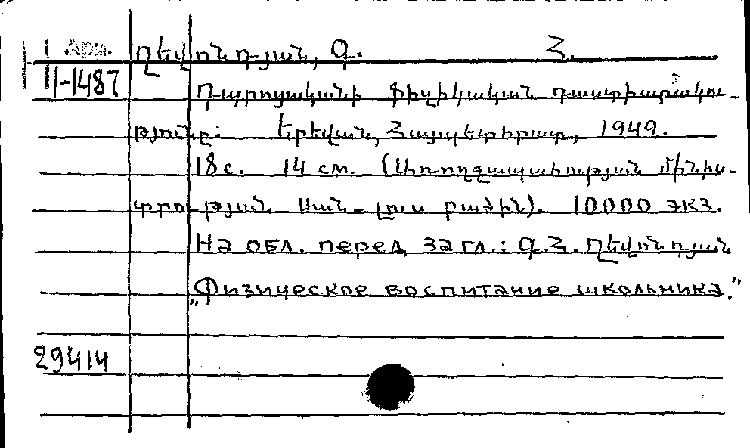 Арм. Ղեվոնդյան, Գ. Հ.
II-1487
Դպրոցականի ֆիզիկական դաստիարակու-
թյունը: Երեվան, Հայպետհրատ, 1949.
18 с. 14 см. (Առողջապահության մինիս-
տրության Սան-լուս բաժին). 10000 экз.
На обл. перед загл.: Գ.Հ. Ղեվոնդյան
„Физическое воспитание школьника."
29414